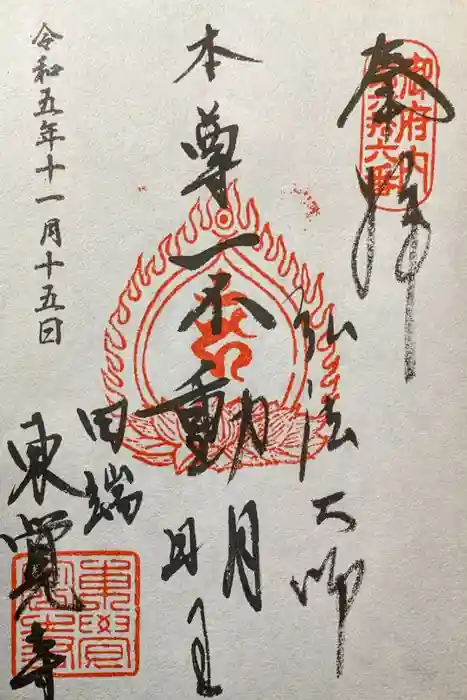 奉拝
御府内
第六十六番
弘法大師
本尊不動明王
田端
東覚寺
令和五年十一月十五日